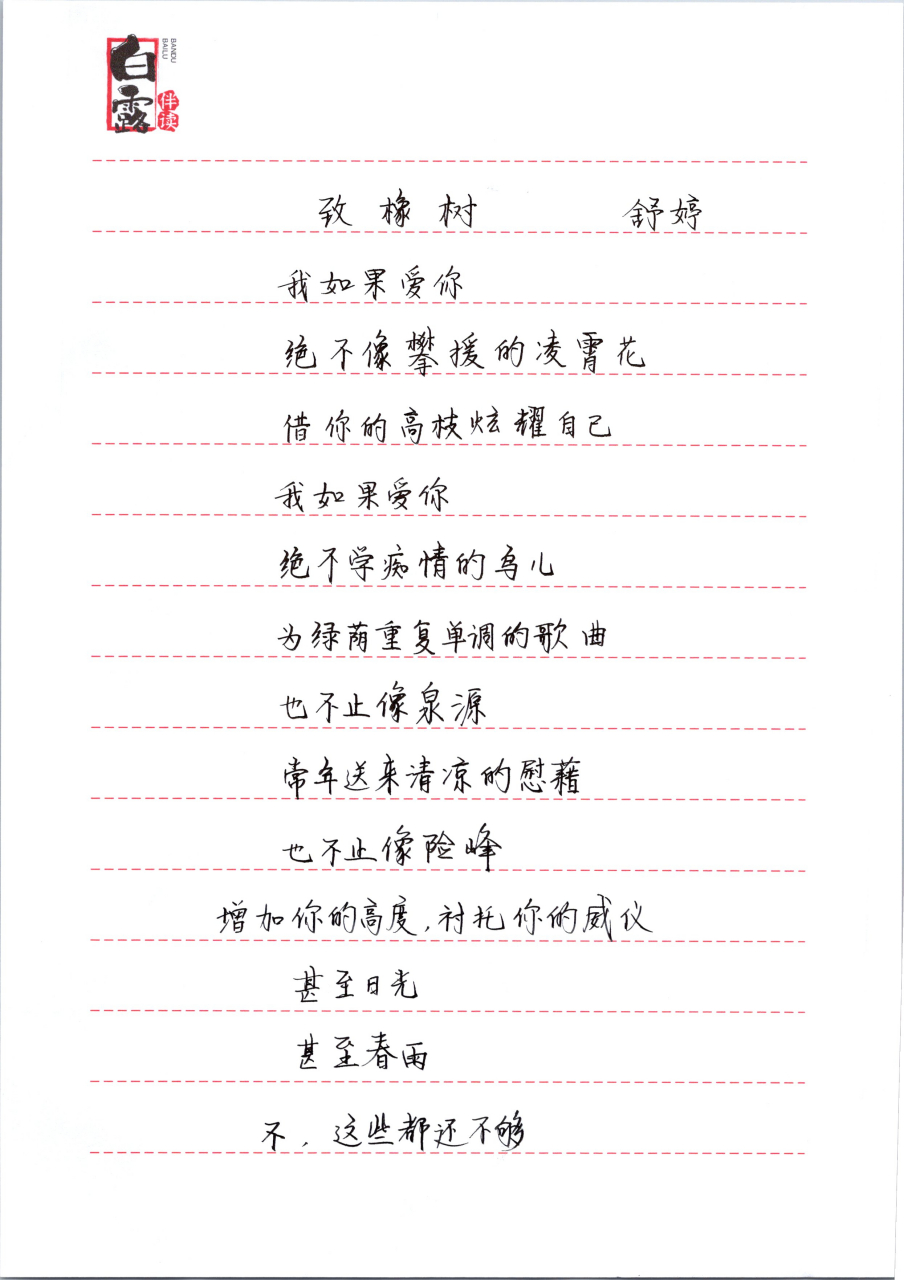 白露
伴读
BANDU
BAILU
致橡树 舒婷
我如果爱你
绝不像攀援的凌霄花
借你的高枝炫耀自己
我如果爱你
绝不学痴情的鸟儿
为绿荫重复单调的歌曲
也不止像泉源
常年送来清凉的慰藉
也不止像险峰
增加你的高度,衬托你的威仪
甚至日光
甚至春雨
不,这些都还不够